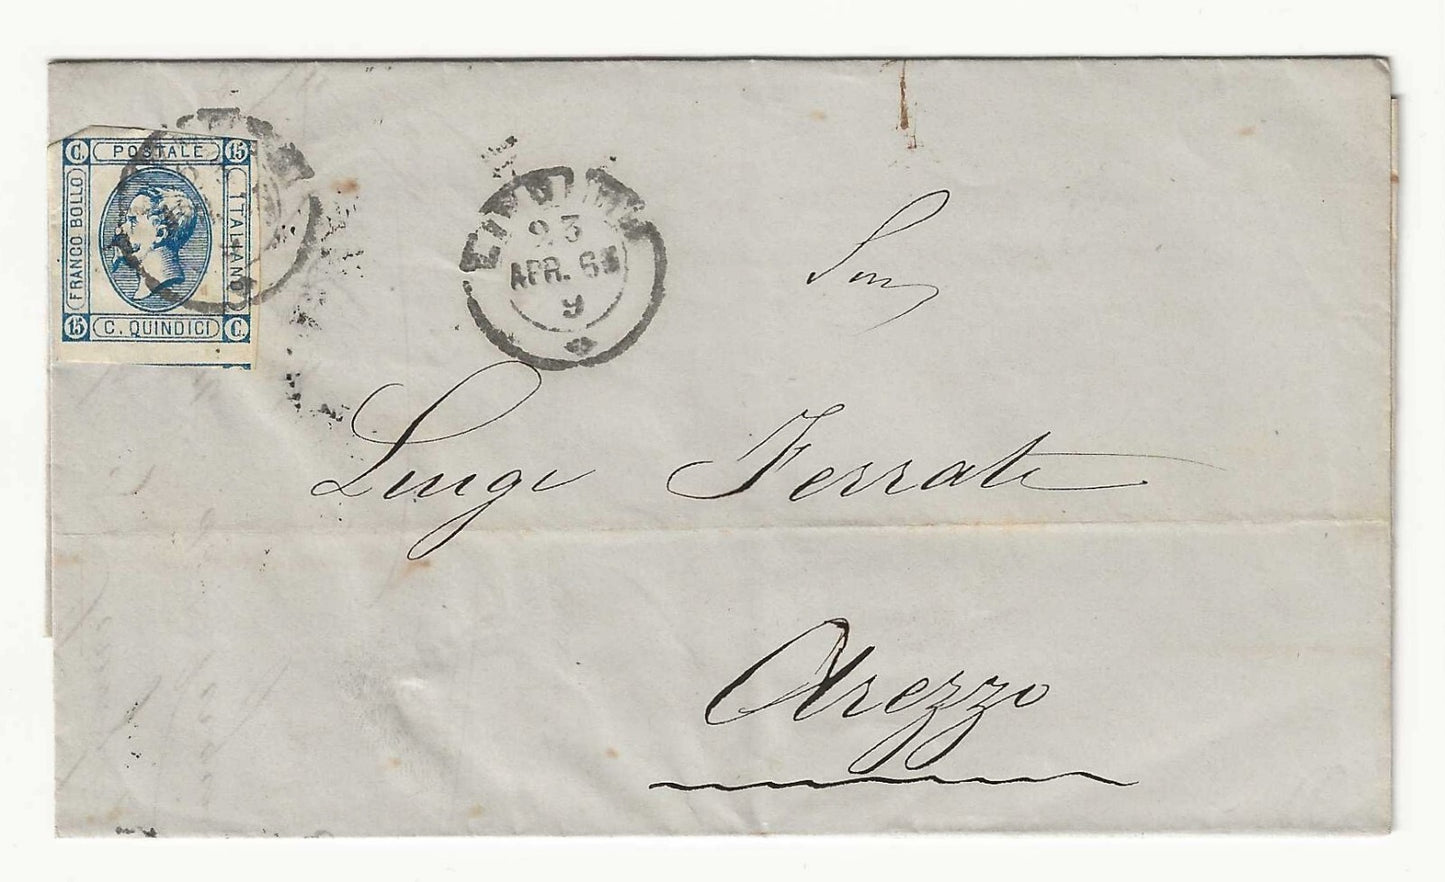 C. POSTALE 15
FRANCO BOLLO
ITALIANO
15 C. QUINDICI C.
23
APR. 63
9
Luigi Ferrati
Arezzo